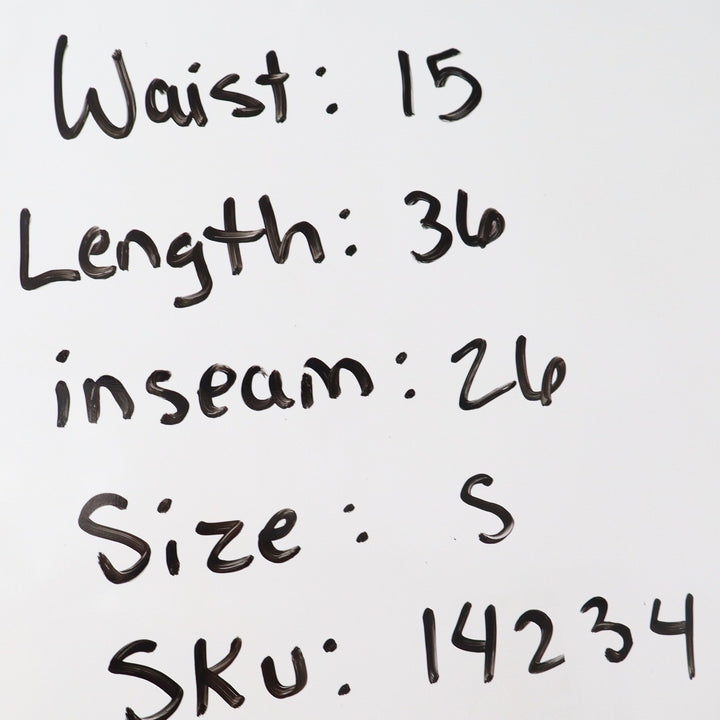 Waist: 15
Length: 36
inseam: 26
Size: S
SKU: 14234